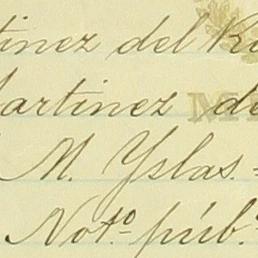 tinez del Rí
Martinez de
M. Yslas.=
Not.º púb.º